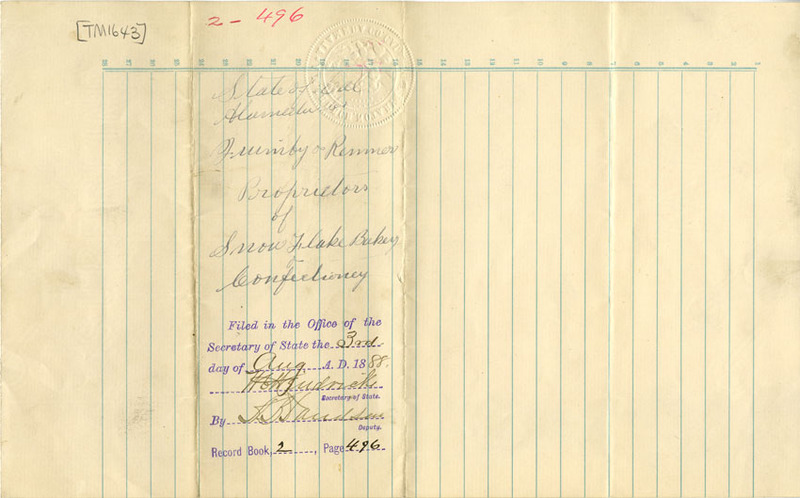 [TM1643]
2 - 496
State of Cal
Alameda Co
& Renner
Proprietors
of
Snow Flake Bakery
&
Confectioney
Filed in the Office of the
Secretary of State the 3rd
day of Aug A. D. 1888.
Secretary of State.
By
Deputy.
Record Book 2, Page 496